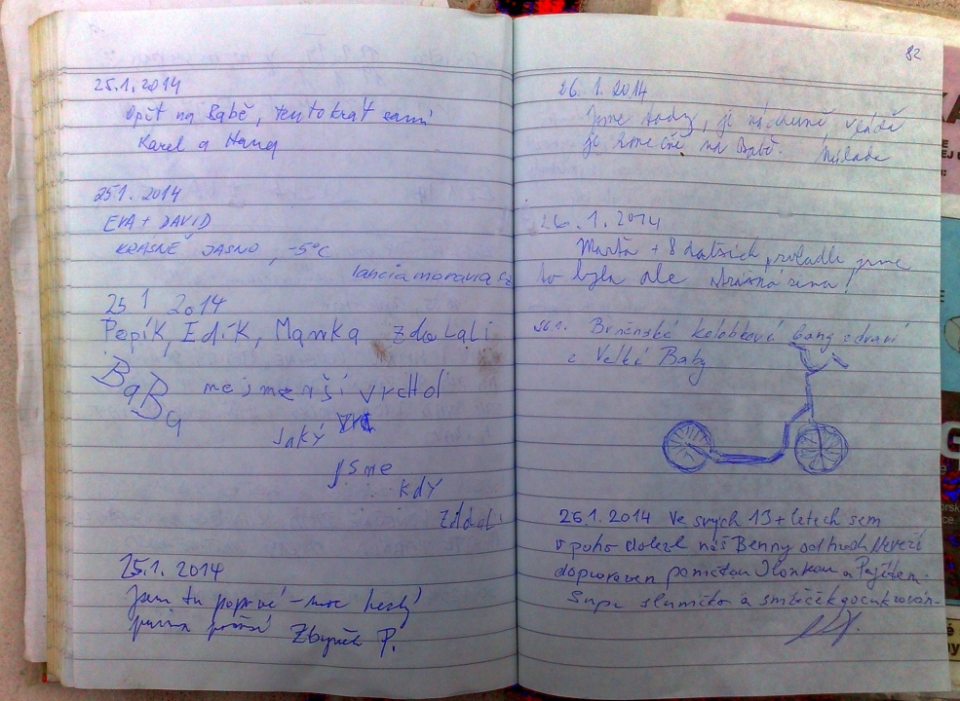 25.1.2014
Opět na Babě, tentokrát sami
Karel a Hana
25.1.2014
EVA + DAVID
KRÁSNĚ JASNO, -5°C
lanciamorava.cz
25 1 2014
Pepík, Edík, Mamka zdolali
BaBa nejmenší vrchol
Jaký
jsme
kdy
zdolali
25.1.2014
Jsem tu poprvé - moc hezký
počasí Zbyněk P.
82
26. 1. 2014
Jsme tady, je nádherně,
je na Babě.
26.1.2014
Marta + 8 dalších, zvládli jsme
to byla ale strašná zima!
Brněnské koloběžkové gang zdraví
z Velké Baby
26.1.2014 Ve svých 13+letech sem
v poho dolezl náš Benny od hradu Veveří
doprovázen Ilonkou a
Supr sluníčko a